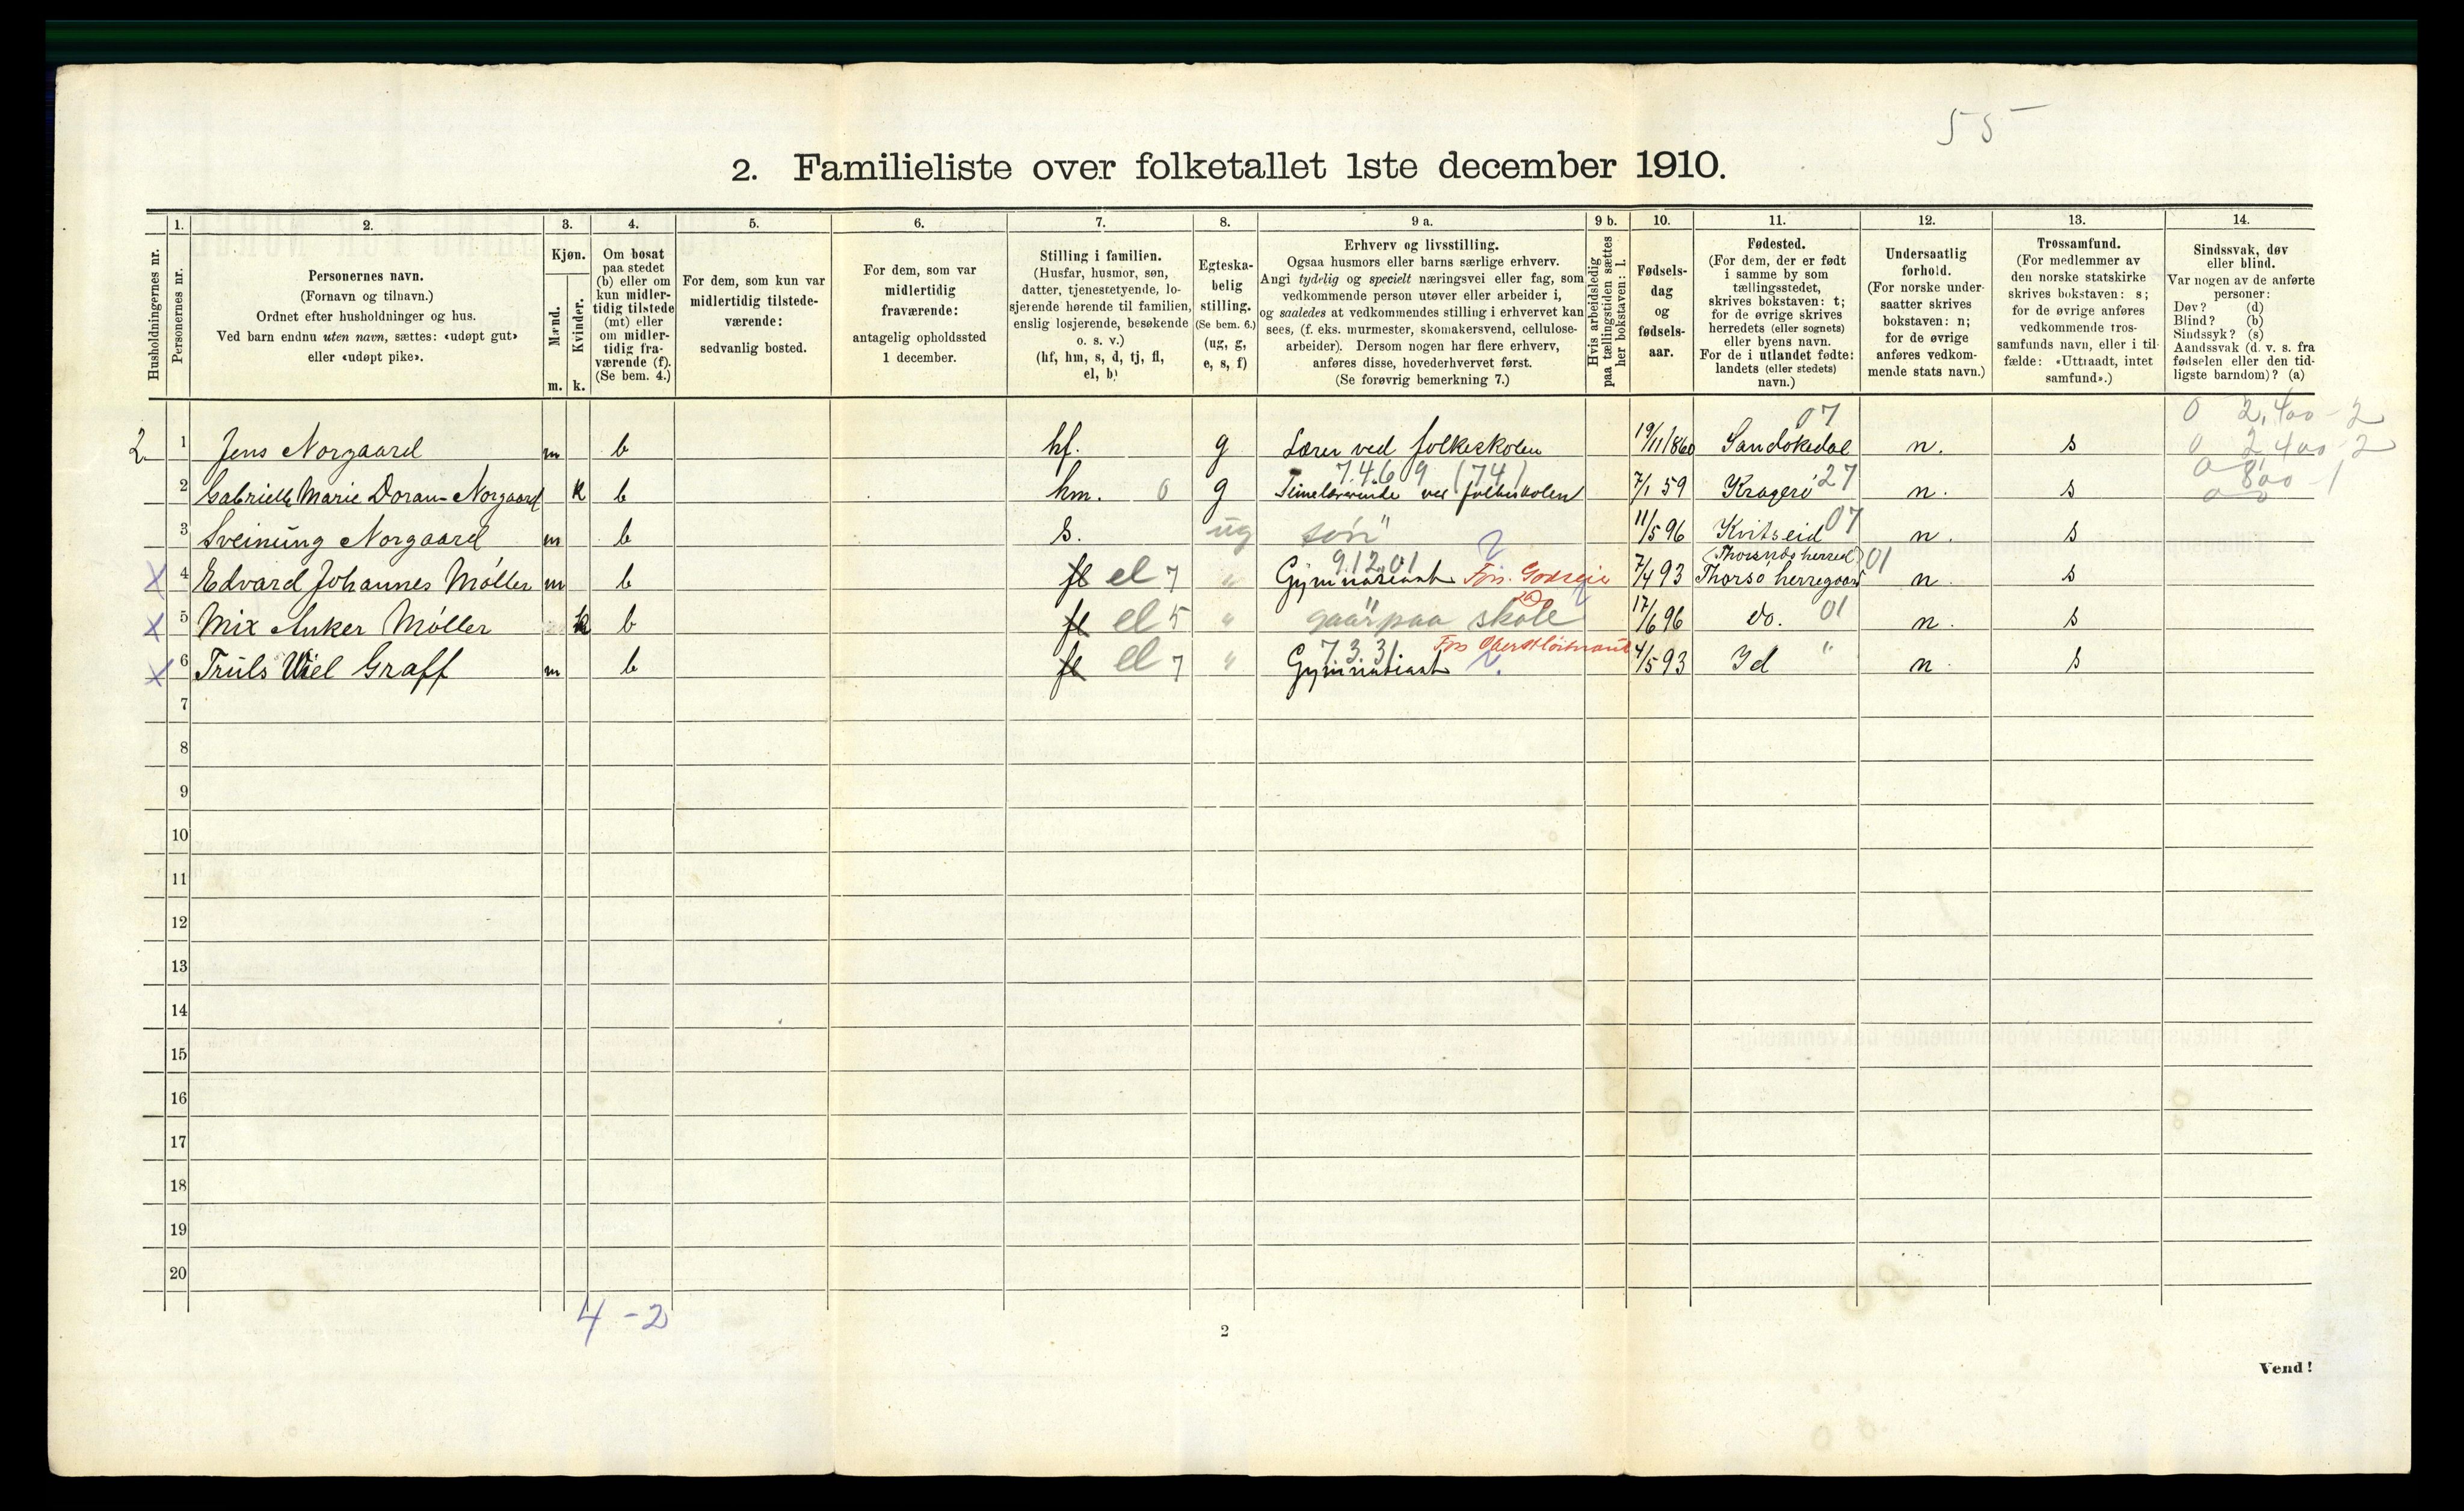 55
2. Familieliste over folketallet 1ste december 1910.
Husholdningernes nr.
1.
Personernes nr.
2.
Personernes navn.
(Fornavn og tilnavn.)
Ordnet efter husholdninger og hus.
Ved barn endnu uten navn, sættes: «udøpt gut»
eller «udøpt pike».
3.
Kjøn.
Mænd.
Kvinder.
m. k.
4.
Om bosat
paa stedet
(b) eller om
kun midler-
tidig tilstede
(mt) eller
om midler-
tidig fra-
værende (f).
(Se bem. 4.)
5.
For dem, som kun var
midlertidig tilstede-
værende:
sedvanlig bosted.
6.
For dem, som var
midlertidig
fraværende:
antagelig opholdssted
1 december.
7.
Stilling i familien.
(Husfar, husmor, søn,
datter, tjenestetyende, lo-
sjerende hørende til familien,
enslig losjerende, besøkende
o. s. v.)
(hf, hm, s, d, tj, fl,
el, b)
8.
Egteska-
belig
stilling.
(Se bem. 6.)
(ug, g,
e, s, f)
9 a.
Erhverv og livsstilling.
Ogsaa husmors eller barns særlige erhverv.
Angi tydelig og specielt næringsvei eller fag, som
vedkommende person utøver eller arbeider i,
og saaledes at vedkommendes stilling i erhvervet kan
sees, (f. eks. murmester, skomakersvend, cellulose-
arbeider). Dersom nogen har flere erhverv,
anføres disse, hovederhvervet først.
(Se forøvrig bemerkning 7.)
9 b.
Hvis arbeidsledig
paa tællingstiden sættes
her bokstaven: l.
10.
Fødsels-
dag
og
fødsels-
aar.
11.
Fødested.
(For dem, der er født
i samme by som
tællingsstedet,
skrives bokstaven: t;
for de øvrige skrives
herredets (eller sognets)
eller byens navn.
For de i utlandet fødte:
landets (eller stedets)
navn.)
12.
Undersaatlig
forhold.
(For norske under-
saatter skrives
bokstaven: n;
for de øvrige
anføres vedkom-
mende stats navn.)
13.
Trossamfund.
(For medlemmer av
den norske statskirke
skrives bokstaven: s;
for de øvrige anføres
vedkommende tros-
samfunds navn, eller i til-
fælde: «Uttraadt, intet
samfund».)
14.
Sindssvak, døv
eller blind.
Var nogen av de anførte
personer:
Døv? (d)
Blind? (b)
Sindssyk? (s)
Aandssvak (d. v. s. fra
fødselen eller den tid-
ligste barndom)? (a)
07 0 2,400-2
2 1 Jens Norgaard m b hf. g Lærer ved folkeskolen 19/11/860 Sandökedal n. s 0 2,400 2
7.4.69 (74) 0 800-1
2 Gabrielle Marie Doran-Norgaard k b hm. 0 g Timelærerinde ved folkeskolen 7/1 59 Kragerö 27 n. s
3 Sveinung Norgaard m b s. ug søn " 11/5 96 Kvitseid 07 n. s
9.12.01 (Thorsnæs herred) 01
X 4 Edvard Johannes Möller m b fl el 7 " Gymnasiast Fors. Godseie 7/4 93 Thorsö herregaard n. s
X 5 Mix Anker Möller k b fl el 5 " gaar paa skole 17/6 96 do. 01 n. s
7.3.31 Fors Oberstlöitnant
X 6 Truls Wiel Graff m b fl el 7 " Gymnasiast 4/5 93 Id " n. s
7
8
9
10
11
12
13
14
15
16
17
18
19
20
4-2
2
Vend!